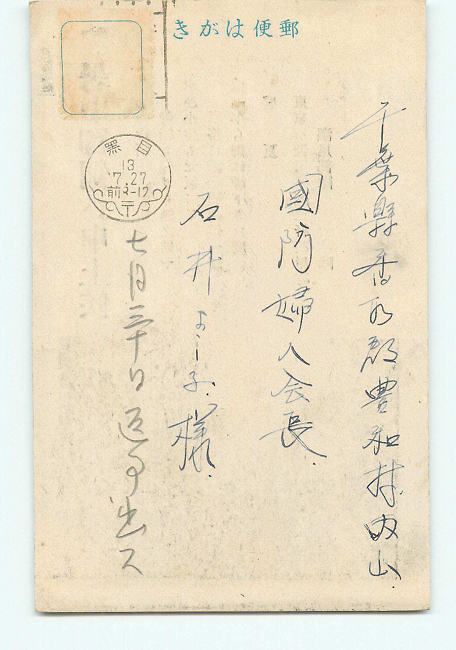 郵便はがき
目黒
13
7.27
千葉縣香取郡豊和村内山
國防婦人会長
石井よし子様
七月三十日返事出ス